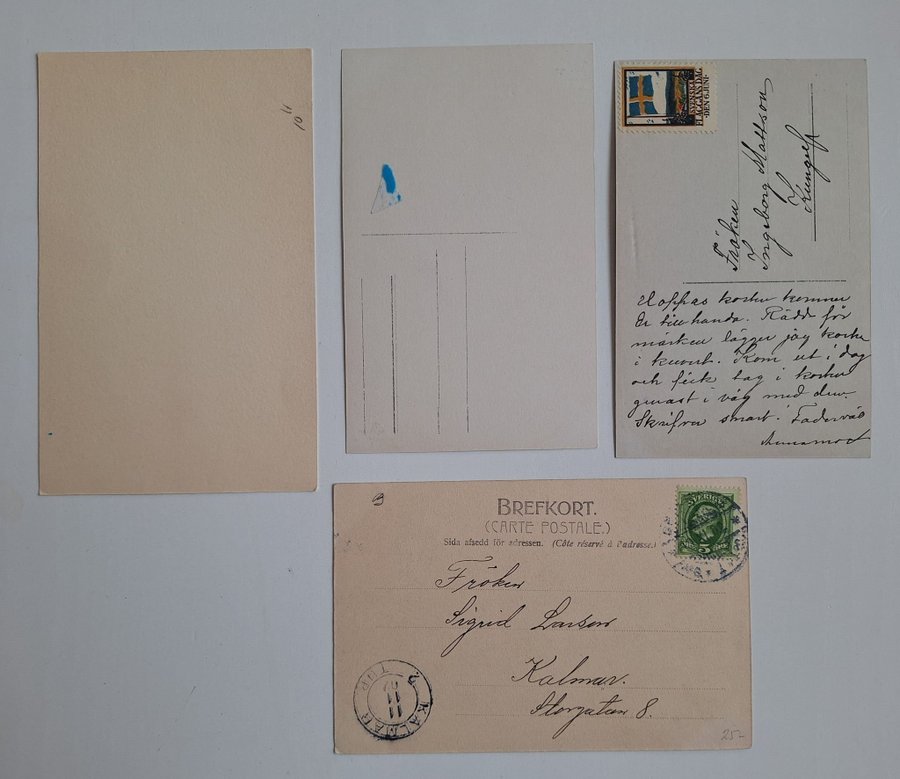 10 11
SVENSKA
FLAGGANS DAG
·DEN 6 JUNI·
Fröken
Ingeborg Mattson
Kungelf
Hoppas kortet kommer
Er till handa. Rädd för
märken lägger jag kortet
i kuvert. Kom ut i dag
och fick tag i kortet
genast i väg med den.
Skrifver snart! Farväl
BREFKORT.
(CARTE POSTALE.)
Sida afsedd för adressen. (Côte réservé à l'adresse.)
SVERIGE
5
Fröken
Sigrid Larson
Kalmar.
Storgatan 8.
KALMAR
TUR
11
11
25-